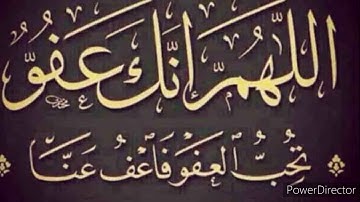 اللَّهُمَّ إِنَّكَ عَفُوٌّ
تُحِبُّ الْعَفْوَ فَاعْفُ عَنَّا
PowerDirector